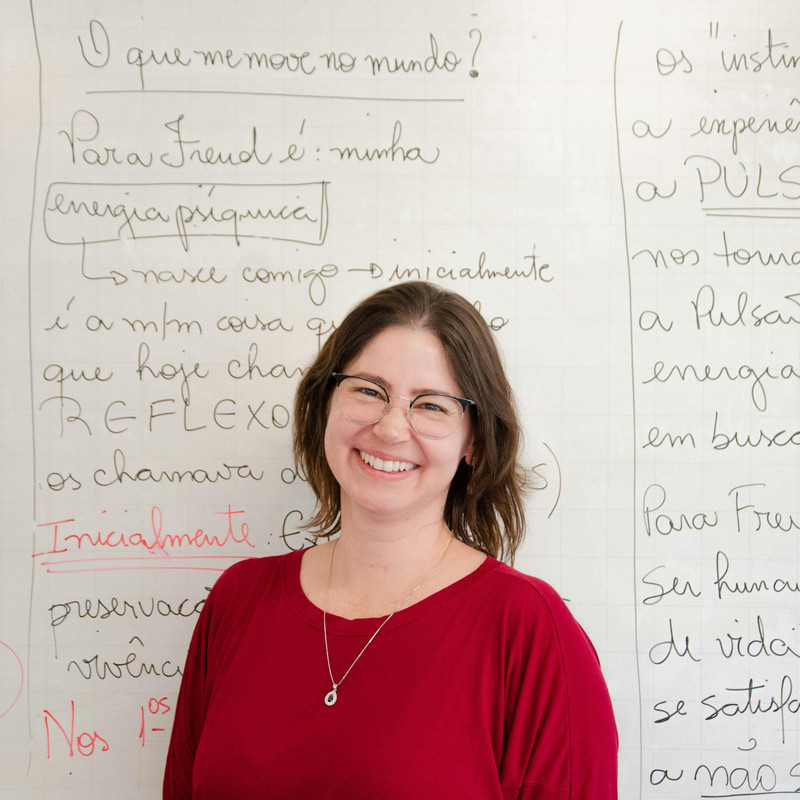 O que me move no mundo?
Para Freud é: minha
energia psíquica
↳ nasce comigo → inicialmente
é a mſm coisa
que hoje
REFLEXO
os chamava
Inicialmente:
preservaçã
vivênci
Nos 1os
os "instin
a experiê
a PULS
nos torna
a Pulsã
energia
em busca
Para Freu
Ser human
de vida
se satisfa
a não s